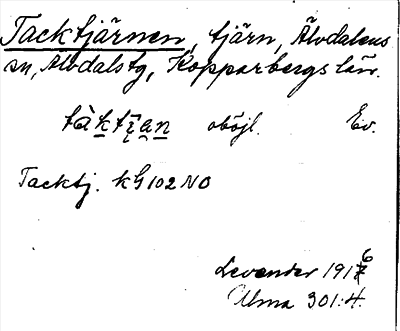 Tacktjärnen, tjärn, Älvdalens
sn, Älvdals tg, Kopparbergs län.
oböjl. Ev.
Tacktj. kG 102 NO
Levander 1916
Ulma 301:4.